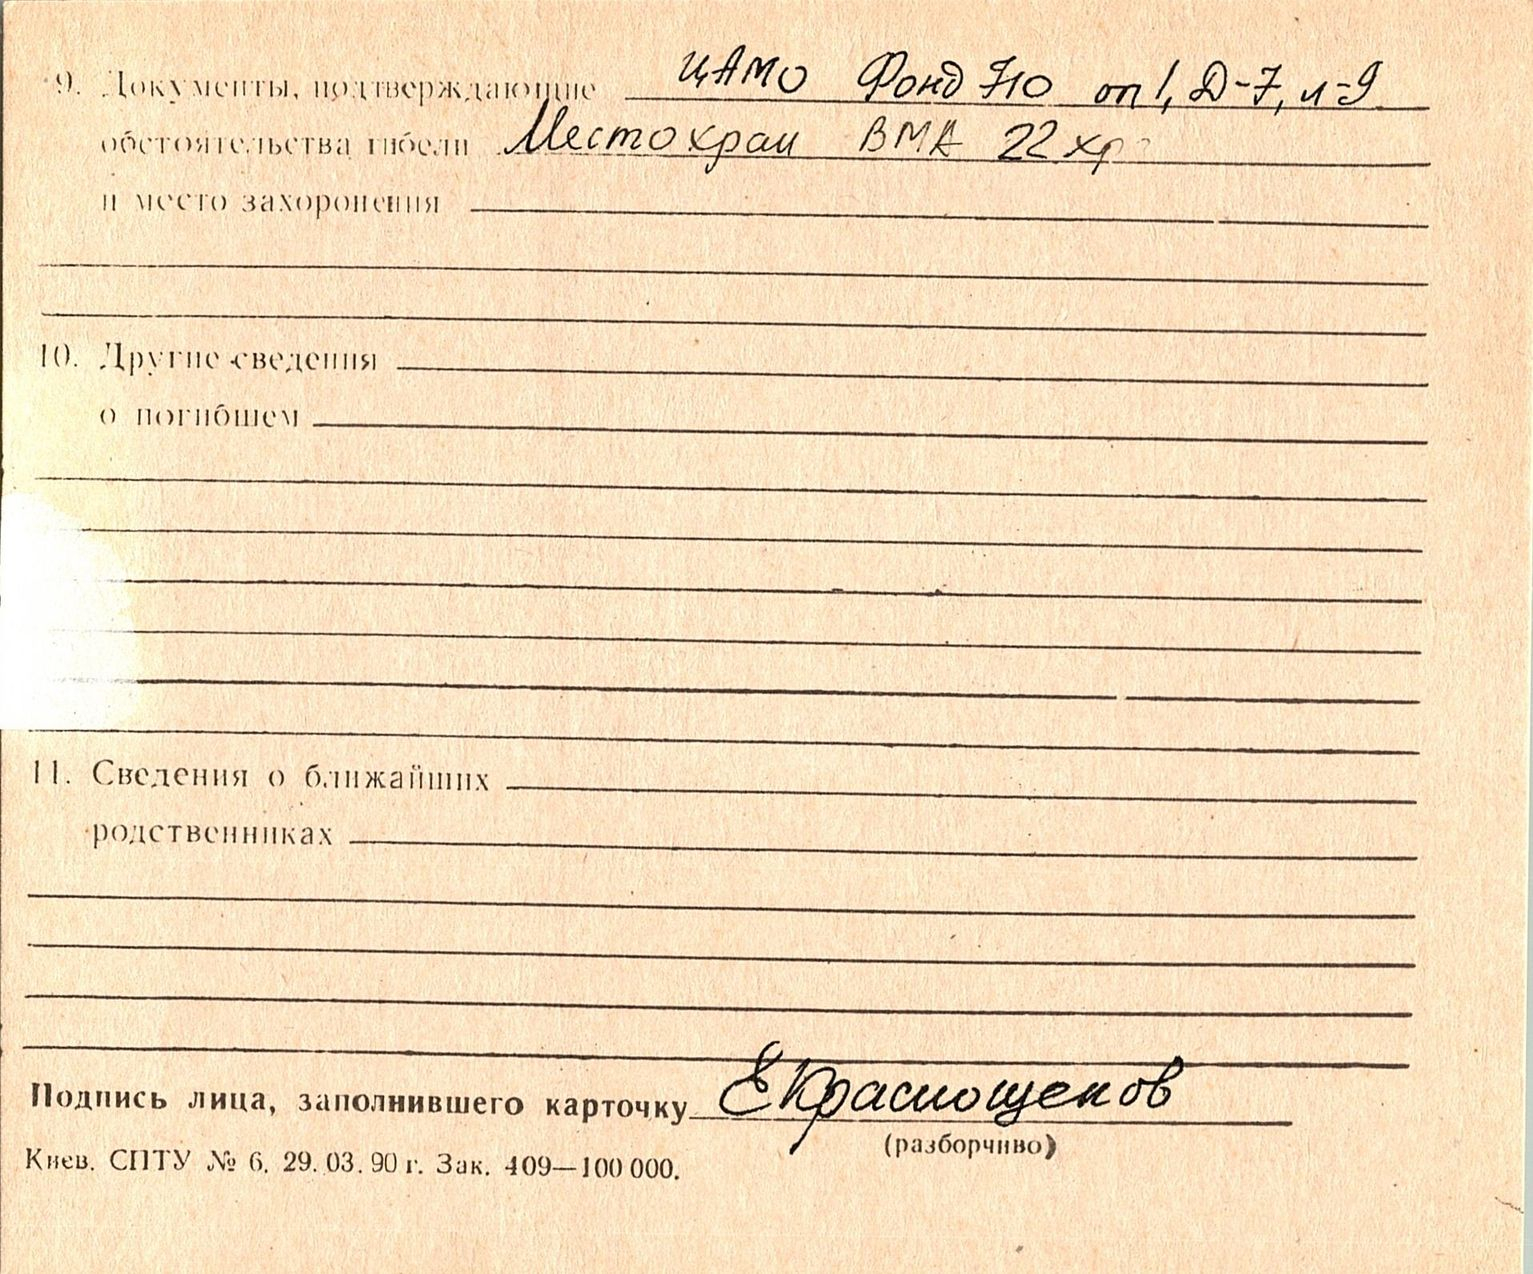 9. Документы, подтверждающие ЦАМО Фонд 710 оп 1, Д-7, л-9
обстоятельства гибели Место хран ВМА 22 хр
и место захоронения
10. Другие сведения
о погибшем
11. Сведения о ближайших
родственниках
Подпись лица, заполнившего карточку ЕКраснощеков
(разборчиво)
Киев. СПТУ № 6. 29.03.90 г. Зак. 409—100 000.